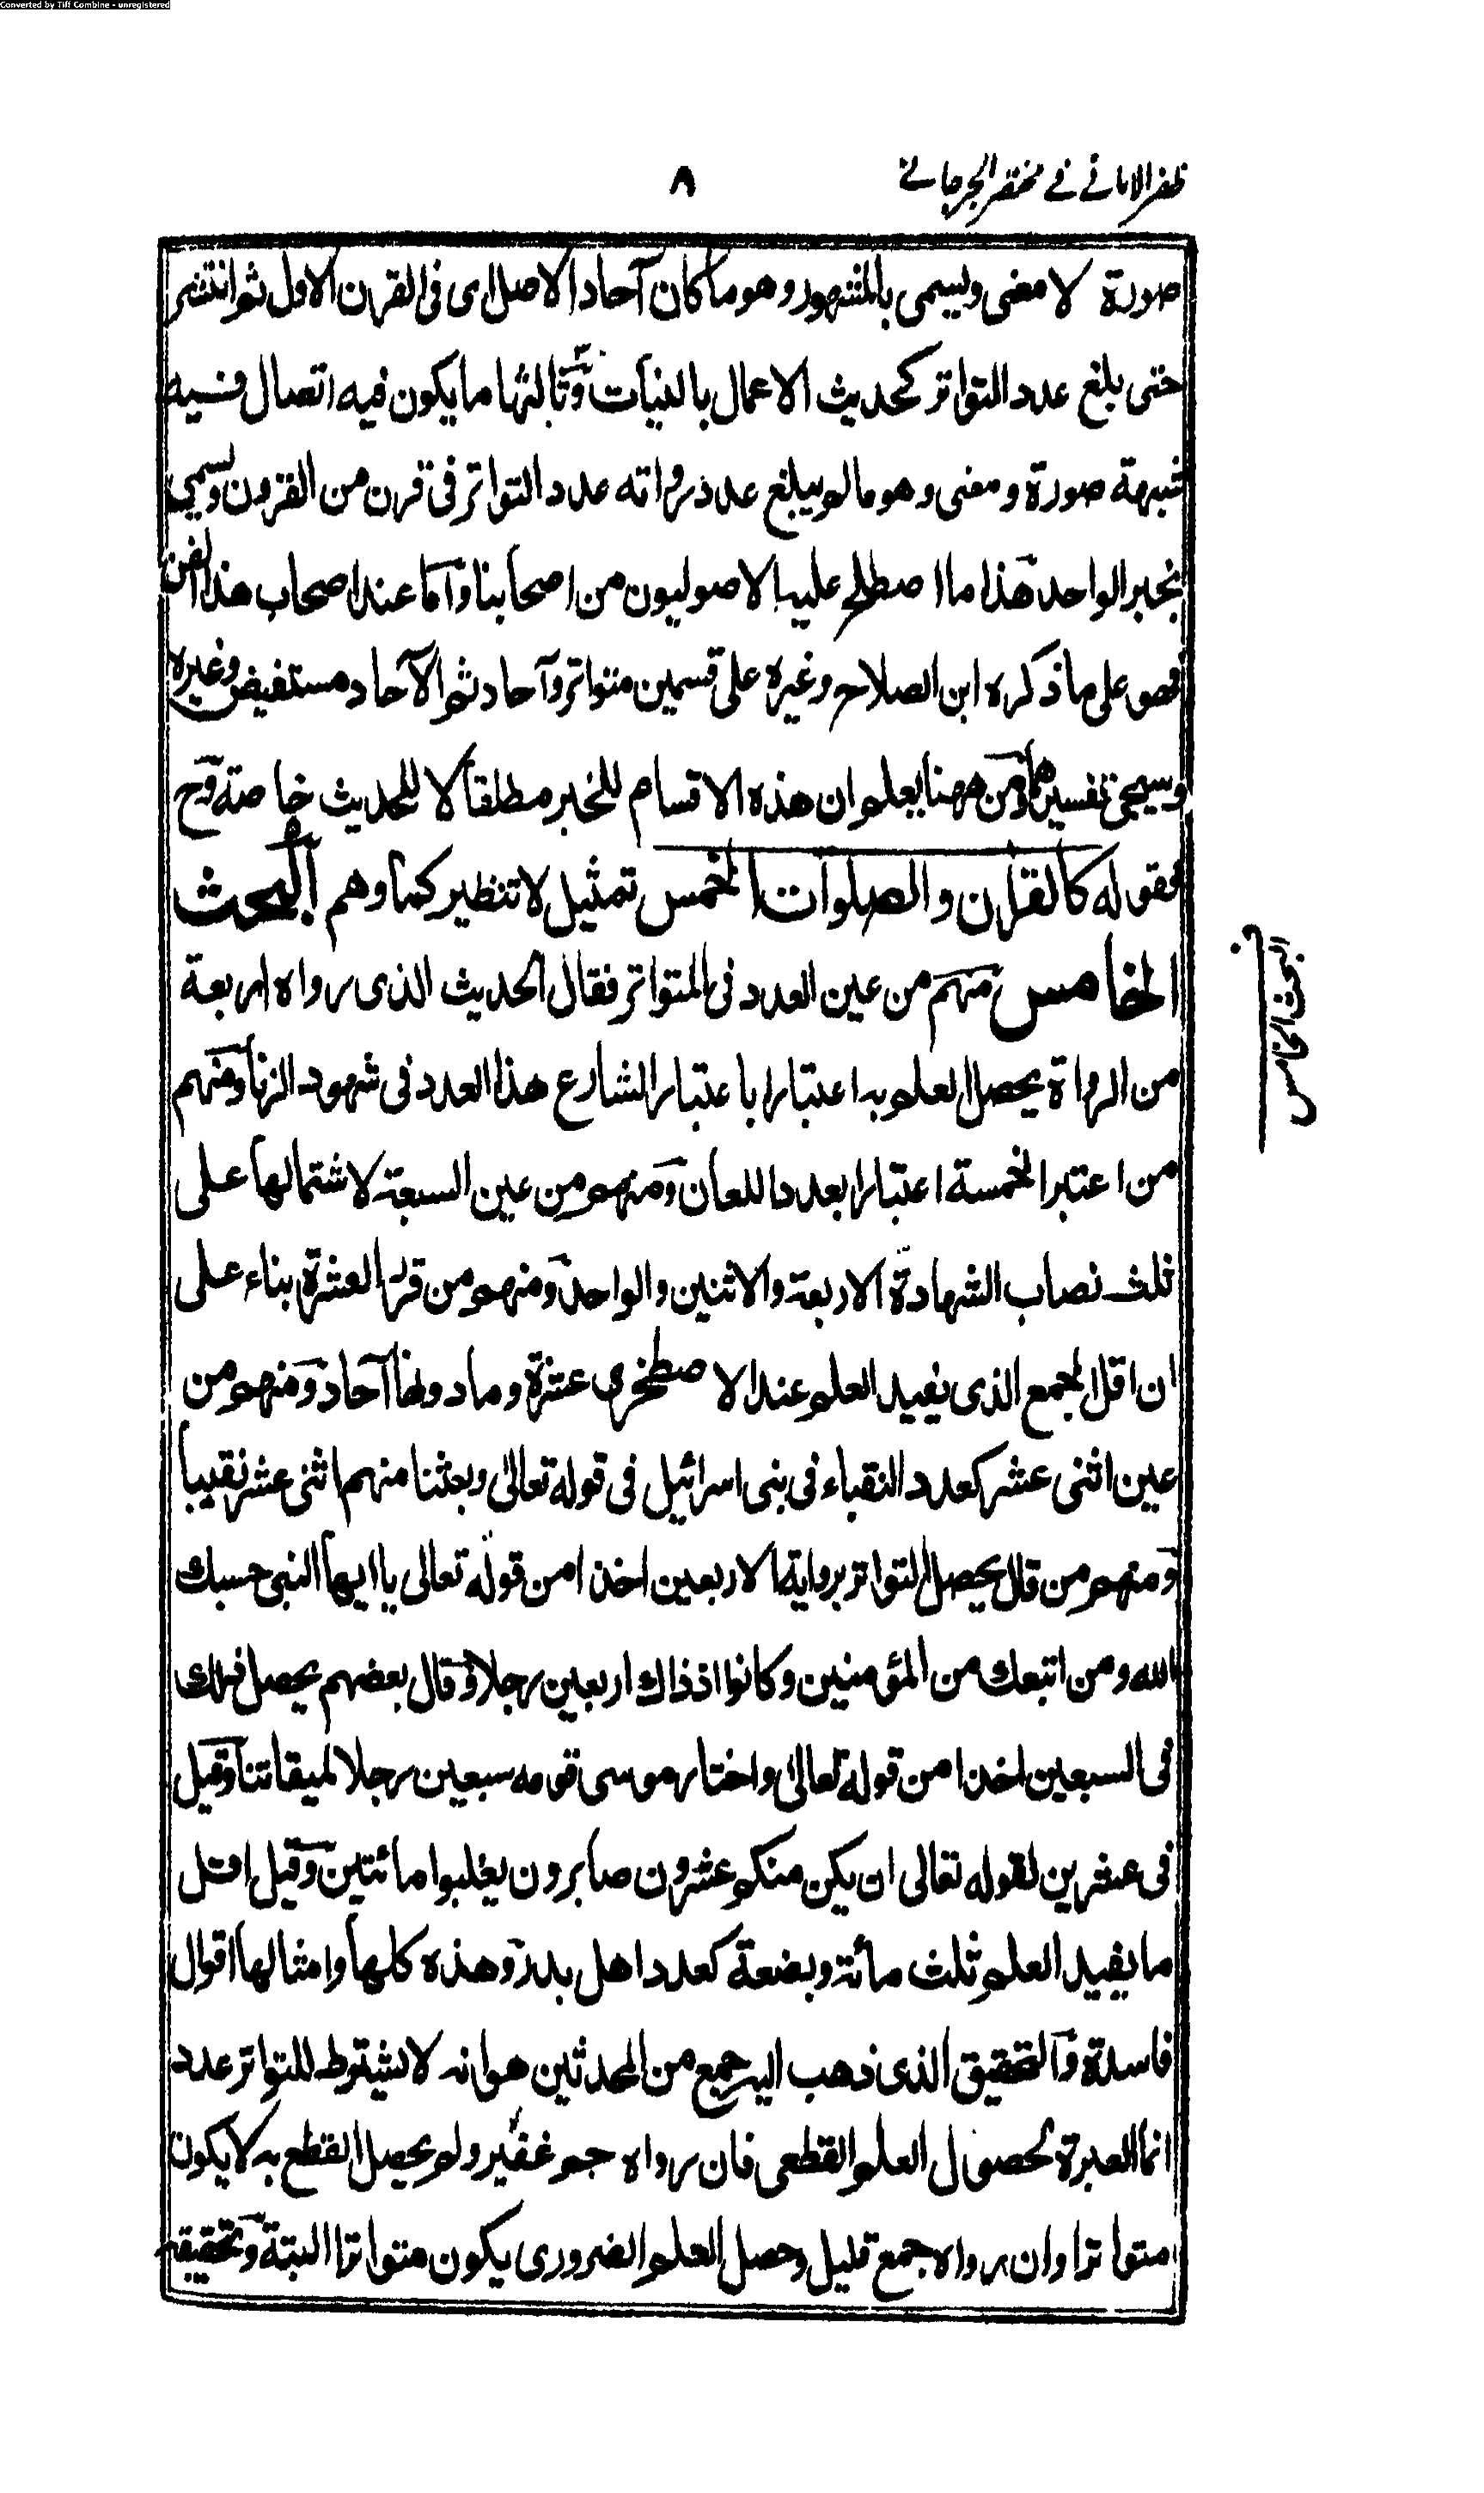 Converted by Tiff Combine - unregistered
ظفر الامانے فے مختصر الجرجانے
٨
صورة لا معنى ويسمى بالمشهور وهو ما كان آحاد الاصل اى فى القرن الاول ثم انتشر
حتى بلغ عدد التواتر كحديث الاعمال بالنيات وثالثها ما يكون فيه اتصال فيه
شبهة صورة ومعنى وهو ما لم يبلغ عدد رواته عدد التواتر فى قرن من القرون ويسمى
بخبر الواحد هذا ما اصطلح عليه الاصوليون من اصحابنا واما عند اصحاب هذا الفن
فهو على ما ذكره ابن الصلاح وغيره على قسمين متواتر وآحاد ثم الآحاد مستفيض وغيره
وسيجئ تفسيرهما ومن ههنا يعلم ان هذه الاقسام للخبر مطلقا لا للحديث خاصة وح
فقوله كالقرآن والصلوات الخمس تمثيل لا تنظير كما وهم البحث
الخامس منهم من عين العدد فى المتواتر فقال الحديث الذى رواه اربعة
من الرواة يحصل العلم به اعتبارا باعتبار الشارع هذا العدد فى شهود الزنا ومنهم
من اعتبر الخمسة اعتبارا بعدد اللعان ومنهم من عين السبعة لاشتمالها على
ثلث نصاب الشهادة الاربعة والاثنين والواحد ومنهم من قرر العشرة بناء على
ان اقل الجمع الذى يفيد العلم عند الاصطخرى عشرة وما دونها آحاد ومنهم من
عين اثنى عشر كعدد النقباء فى بنى اسرائيل فى قوله تعالى وبعثنا منهم اثنى عشر نقيبا
ومنهم من قال يحصل التواتر برواية الاربعين اخذا من قوله تعالى يا ايها النبى حسبك
الله ومن اتبعك من المؤمنين وكانوا اذ ذاك اربعين رجلا وقال بعضهم يحصل ذلك
فى السبعين اخذا من قوله تعالى واختار موسى قومه سبعين رجلا لميقاتنا وقيل
فى عشرين لقوله تعالى ان يكن منكم عشرون صابرون يغلبوا مائتين وقيل اقل
ما يفيد العلم ثلث مائة وبضعة كعدد اهل بدر وهذه كلها وامثالها اقوال
فاسدة والتحقيق الذى ذهب اليه جمع من المحدثين هو انه لا يشترط للتواتر عدد
انما العبرة لحصول العلم القطعى فان رواه جم غفير ولم يحصل القطع به لا يكون
متواترا وان رواه جمع قليل وحصل العلم الضرورى يكون متواترا البتة وتحقيقه
البحث الخامس